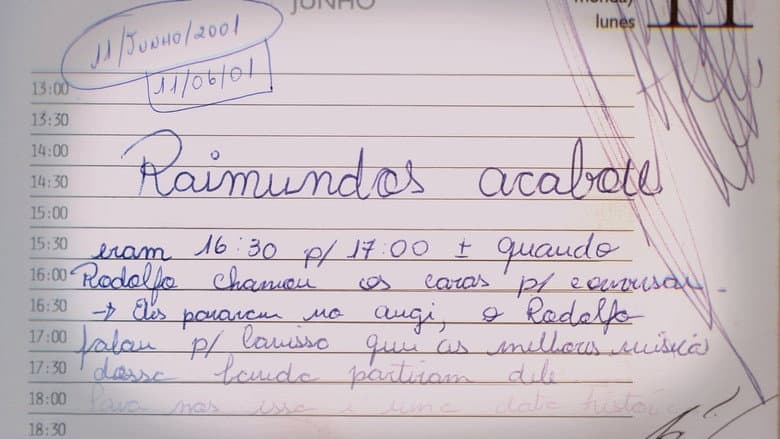 JUNHO
monday
lunes 11
11/JUNHO/2001
11/06/01
13:00
13:30
14:00
Raimundos acabou
14:30
15:00
15:30 eram 16:30 p/ 17:00 ± quando
16:00 Rodolfo chamou os caras p/ conversar.
16:30 → Eles pararam no augi, o Rodolfo
17:00 falou p/ Canisso que as melhores músicas
17:30 dessa banda partiram dele
18:00 Para nós essa é uma data histórica
18:30